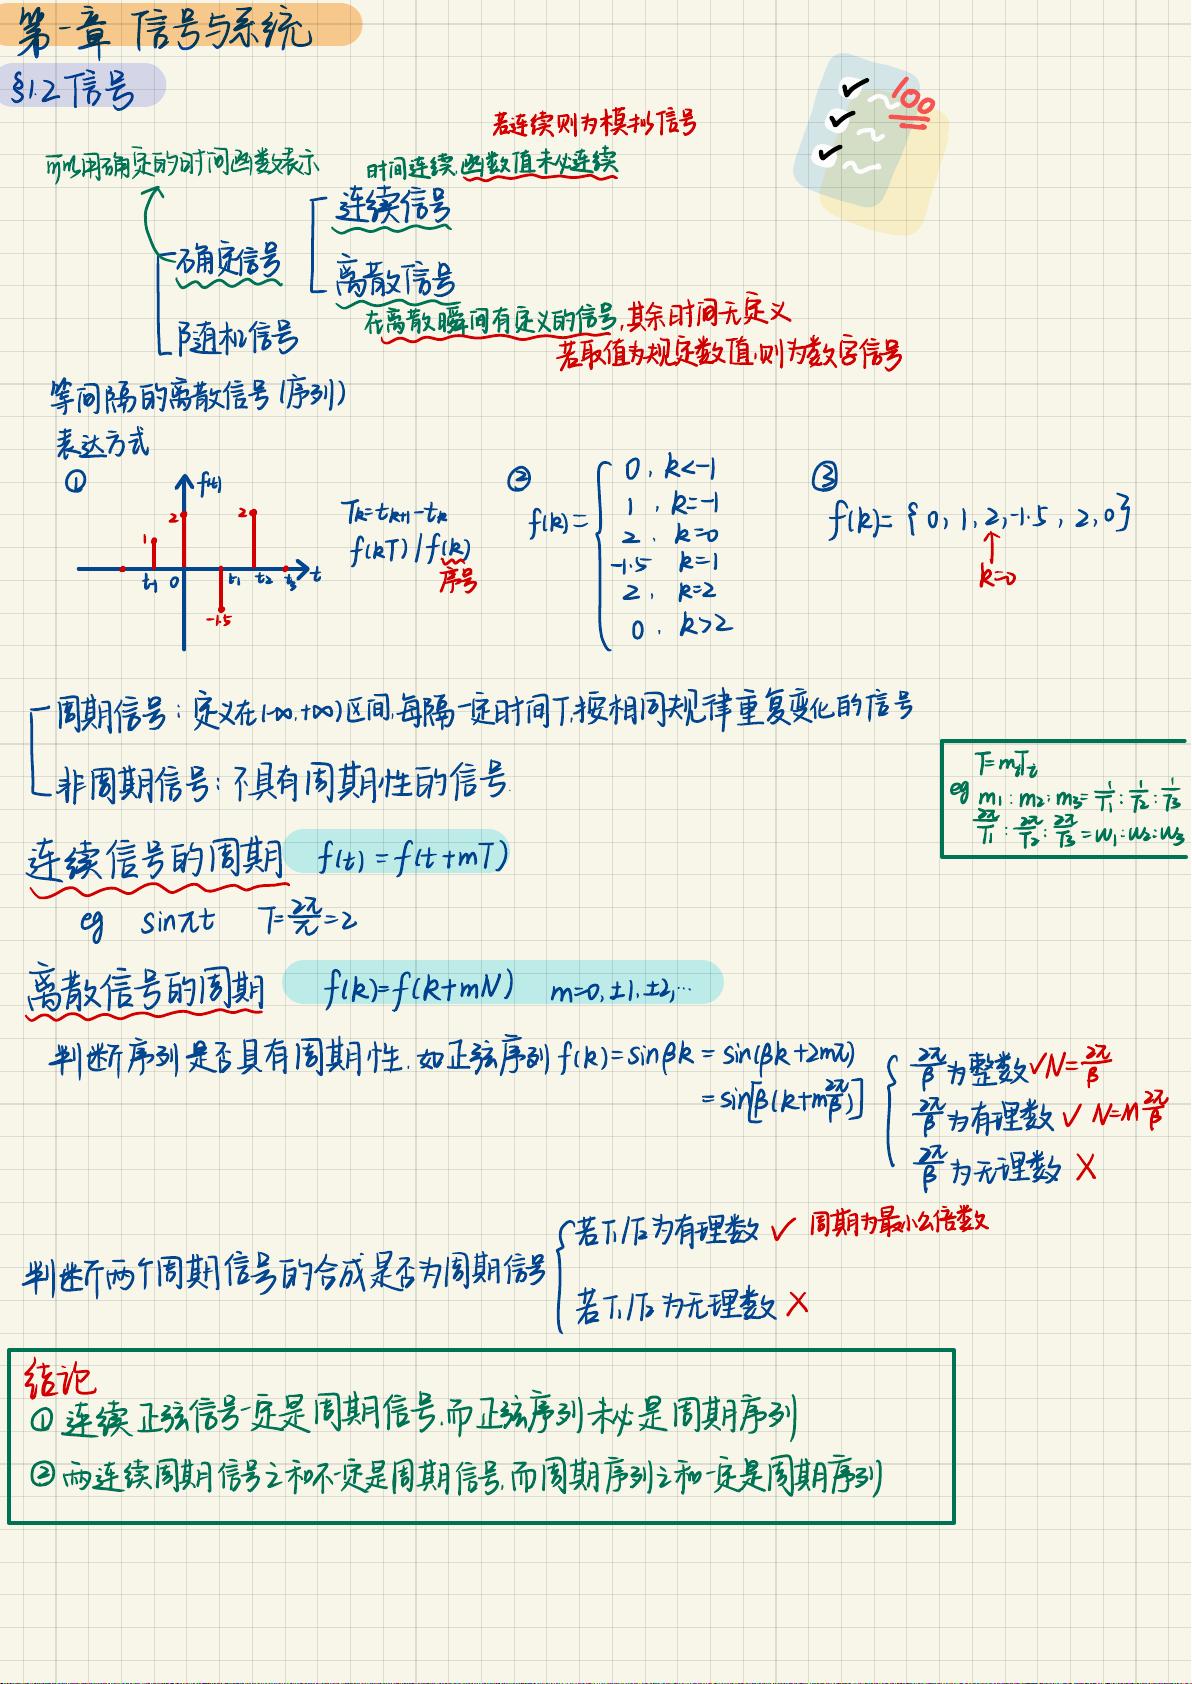 第一章 信号与系统
§1.2 信号
若连续则为模拟信号
可以用确定的时间函数表示
时间连续,函数值未必连续
连续信号
确定信号
离散信号
在离散瞬间有定义的信号,其余时间无定义
随机信号
若取值为规定数值,则为数字信号
等间隔的离散信号(序列)
表达方式
①
f(t)
2
2
1
t₋₁ 0 t₁ t₂ t₃ t
-1.5
Tk=tk+1-tk
f(kT)/f(k)
序号
②
f(k)=
0, k<-1
1, k=-1
2, k=0
-1.5 k=1
2, k=2
0, k>2
③
f(k)={0,1,2,-1.5,2,0}
↑
k=0
周期信号:定义在(-∞,+∞)区间,每隔一定时间T,按相同规律重复变化的信号
非周期信号:不具有周期性的信号.
T=m₁T₁
eg m₁:m₂:m₃=1/T₁:1/T₂:1/T₃
2π/T₁:2π/T₂:2π/T₃=w₁:w₂:w₃
连续信号的周期 f(t)=f(t+mT)
eg sinπt T=2π/π=2
离散信号的周期 f(k)=f(k+mN) m=0,±1,±2,…
判断序列是否具有周期性.如正弦序列f(k)=sinβk=sin(βk+2mπ)
=sin[β(k+m2π/β)]
2π/β为整数✓N=2π/β
2π/β为有理数✓ N=M2π/β
2π/β为无理数 ×
判断两个周期信号的合成是否为周期信号
若T₁/T₂为有理数 ✓ 周期为最小公倍数
若T₁/T₂为无理数 ×
结论
①连续正弦信号一定是周期信号,而正弦序列未必是周期序列
②两连续周期信号之和不一定是周期信号,而周期序列之和一定是周期序列
100